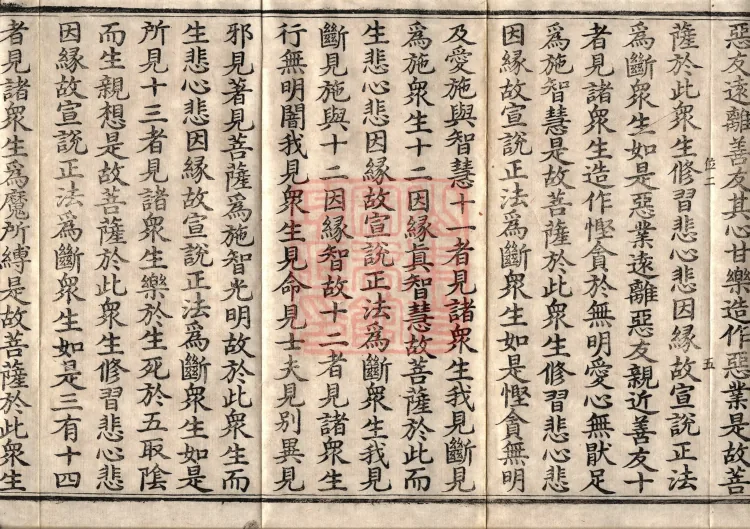 惡友遠離善友其心甘樂造作惡業是故菩
薩於此衆生修習悲心悲因緣故宣說正法
位二
五
為斷衆生如是惡業遠離惡友親近善友十
者見諸衆生造作慳貪於無明愛心無猒足
為施智慧是故菩薩於此衆生修習悲心悲
因緣故宣說正法為斷衆生如是慳貪無明
及愛施與智慧十一者見諸衆生我見斷見
為施衆生十二因緣真智慧故菩薩於此而
生悲心悲因緣故宣說正法為斷衆生我見
斷見施與十二因緣智故十二者見諸衆生
行無明闇我見衆生見命見士夫見別異見
邪見著見菩薩為施智光明故於此衆生而
生悲心悲因緣故宣說正法為斷衆生如是
所見十三者見諸衆生樂於生死於五取陰
而生親想是故菩薩於此衆生修習悲心悲
因緣故宣說正法為斷衆生如是三有十四
者見諸衆生為魔所縛是故菩薩於此衆生